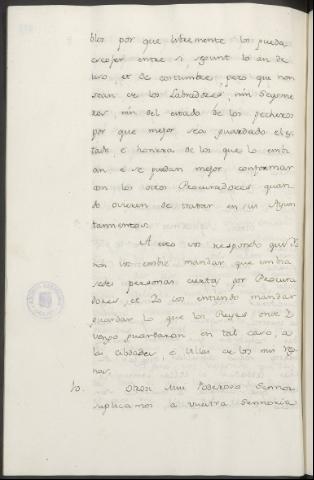 blos por que libremente los pueda
escojer entre si segunt lo an de
uso, et de costumbre, pero que non
sean de los Labradores, nin Sesme
ros, nin del estado de los pecheros
por que mejor sea guardado el es
tado, e honrra de los que lo embi
an e se puedan mejor conformar
con los otros Procuradores quan
do ovieren de tratar en sus Ayun
tamientos.
A esto vos respondo que Yo
non los embie mandar que embia
sedes personas ciertas por Procura
dores, et Yo los entiendo mandar
guardar lo que los Reyes onde Yo
vengo guardaron en tal caso, a
las cibdades, e villas de los mis rey
nos.
10. Otrosi mui Poderoso Sennor
suplicamos a vuestra Sennoria